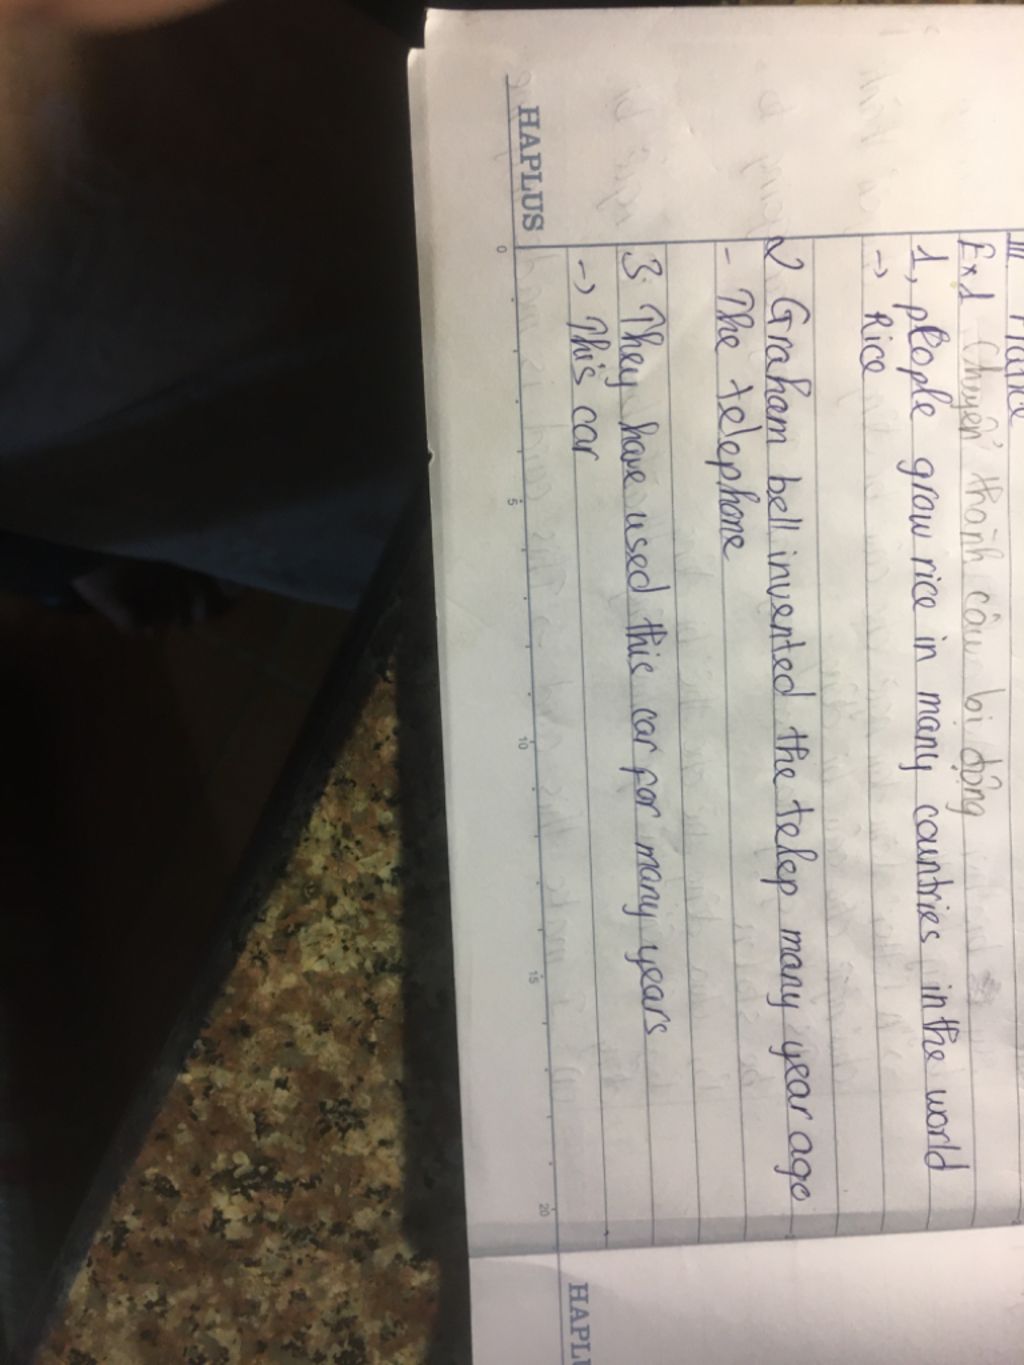 III
Ex1 Chuyển thành câu bị động
1, people grow rice in many countries in the world
-> Rice
2 Graham bell invented the telep many year ago
- The telephone
3. They have used thic car for many years
-> This car
0 5 10 15 20
HAPLUS
HAPLU